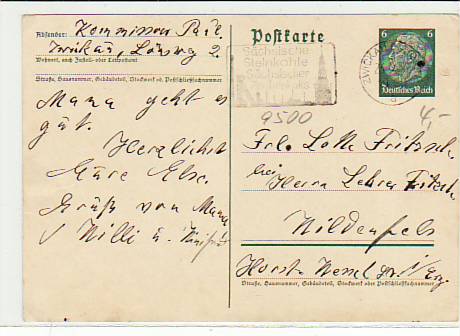 Absender: Kommissou Paul
Zwickau, Lönsweg 2.
Wohnort, auch Zustell- oder Leitpostamt
Straße, Hausnummer, Gebäudeteil, Stockwerk od. Postschließfachnummer
Mama geht es
gut.
Herzlichst
Eure Else.
Gruß von Mama
Willi u.
Postkarte
Sächsische
Steinkohle
Sächsischer
Koks
6 6
Deutsches Reich
ZWICKAU
9500
4,-
Frl. Lotte Fritzsch
bei
Herrn Lehrer Fritzsch
Wildenfels
Horst Wessel Str. 1/Erzg.
Straße, Hausnummer, Gebäudeteil, Stockwerk oder Postschließfachnummer